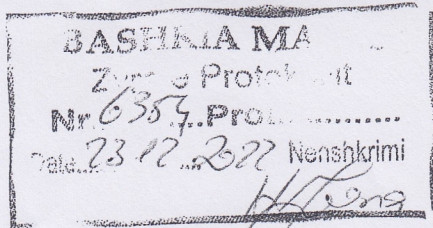 BASHKIA MA
Zyra e Protokollit
Nr. 6354 Prot.
Data 23.12.2022 Nenshkrimi